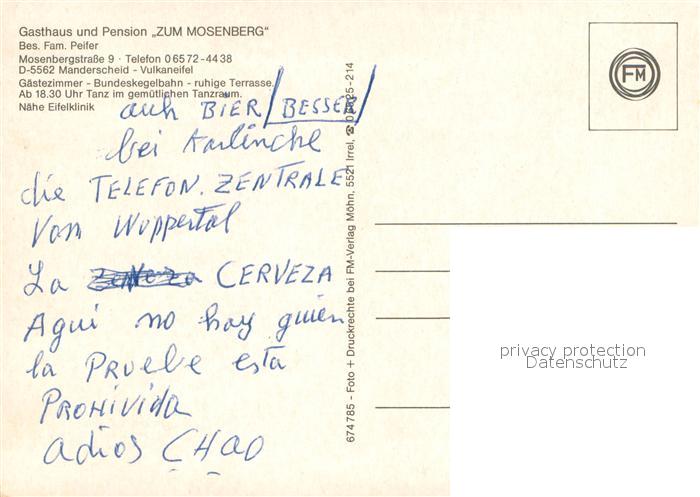 Gasthaus und Pension „ZUM MOSENBERG“
Bes. Fam. Peifer
Mosenbergstraße 9 · Telefon 06572-4438
D-5562 Manderscheid - Vulkaneifel
Gästezimmer - Bundeskegelbahn - ruhige Terrasse.
Ab 18.30 Uhr Tanz im gemütlichen Tanzraum.
Nähe Eifelklinik
auch BIER / BESSER /
bei Karlinche
die TELEFON. ZENTRALE
Vom Wuppertal
La CERVEZA
Aqui no hay quien
la PRUEBE esta
PROHIVIDA
adios CHAO
674785 - Foto + Druckrechte bei FM-Verlag Möhn, 5521 Irrel, ☎ 06525-214
FM
privacy protection
Datenschutz